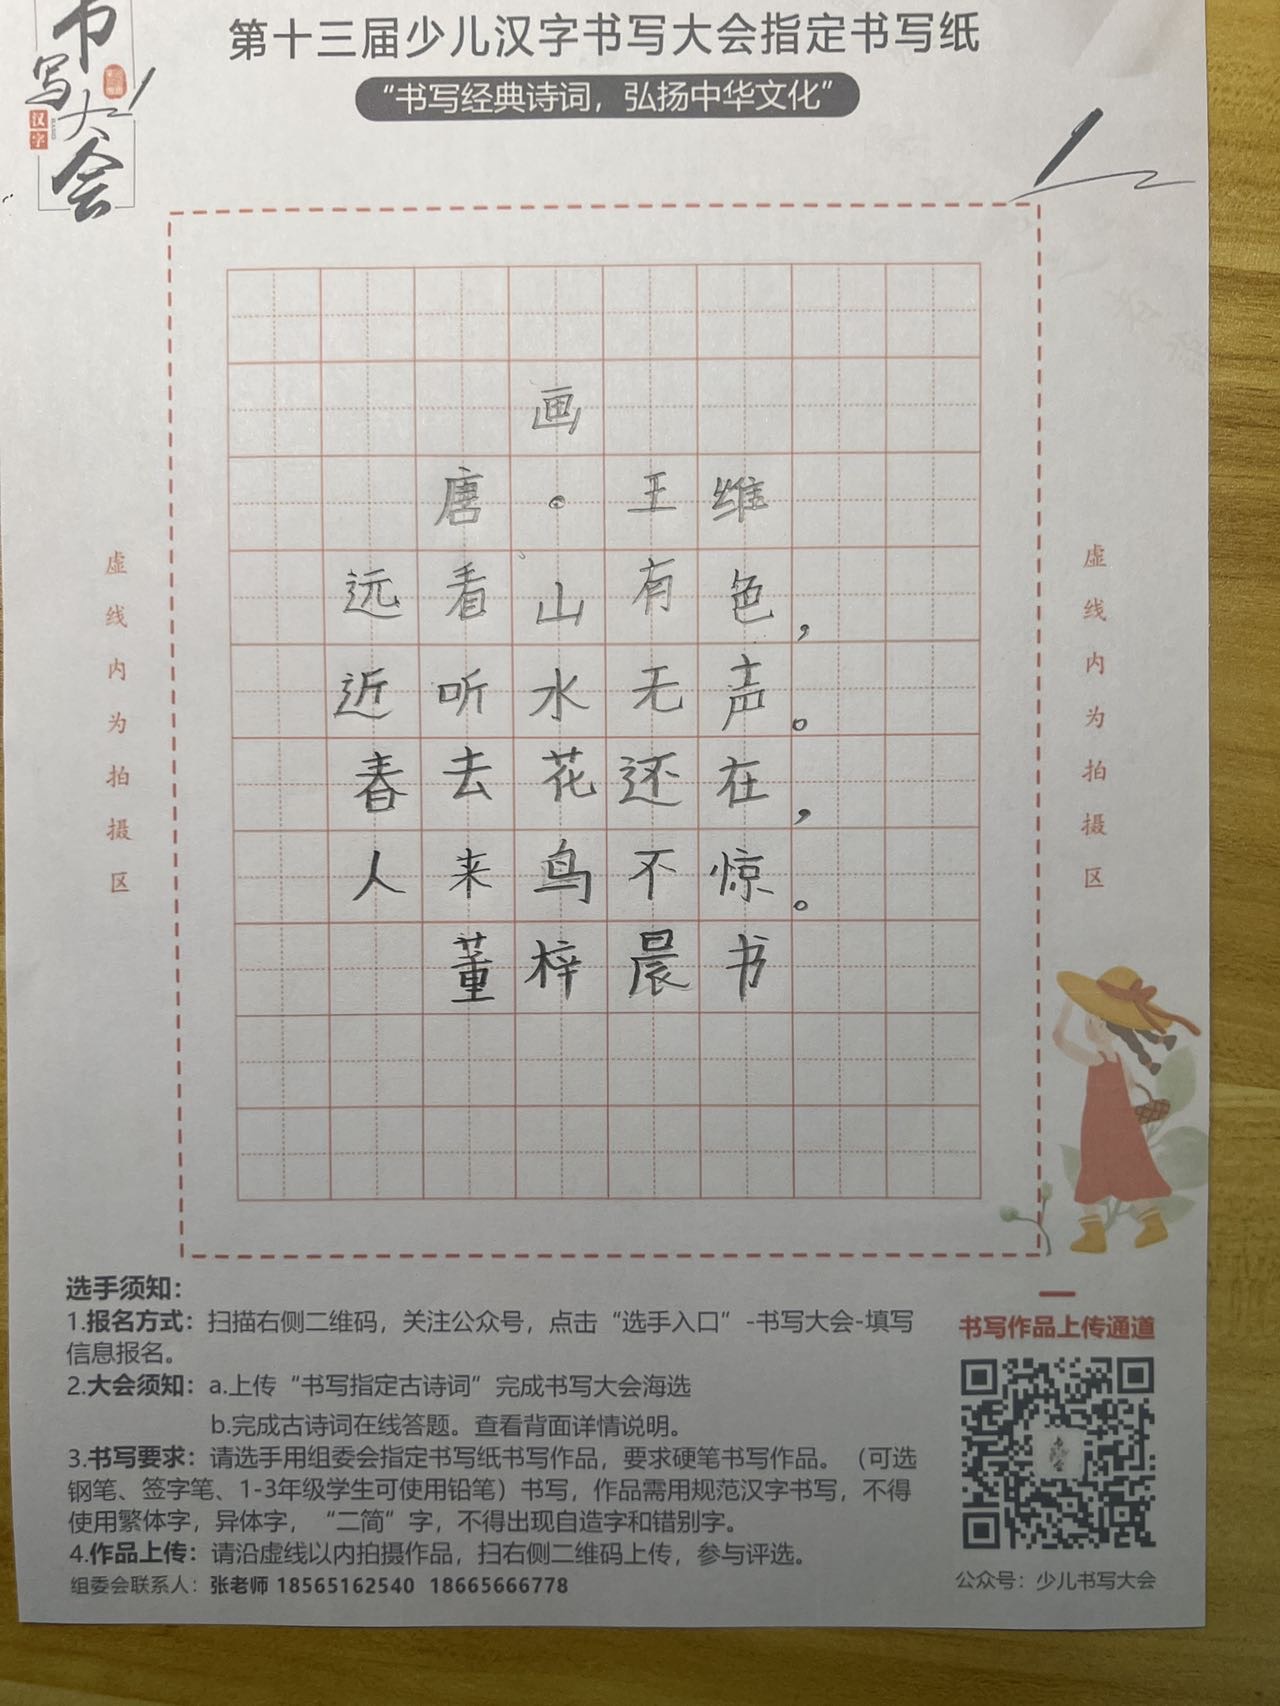 书写大会
汉字
第十三届少儿汉字书写大会指定书写纸
“书写经典诗词，弘扬中华文化”
画
唐·王维
远看山有色，
近听水无声。
春去花还在，
人来鸟不惊。
董梓晨书
虚线内为拍摄区
虚线内为拍摄区
选手须知：
1.报名方式：扫描右侧二维码，关注公众号，点击“选手入口”-书写大会-填写
信息报名。
2.大会须知：a.上传“书写指定古诗词”完成书写大会海选
b.完成古诗词在线答题。查看背面详情说明。
3.书写要求：请选手用组委会指定书写纸书写作品，要求硬笔书写作品。（可选
钢笔、签字笔、1-3年级学生可使用铅笔）书写，作品需用规范汉字书写，不得
使用繁体字，异体字，“二简”字，不得出现自造字和错别字。
4.作品上传：请沿虚线以内拍摄作品，扫右侧二维码上传，参与评选。
组委会联系人：张老师 18565162540 18665666778
书写作品上传通道
公众号：少儿书写大会